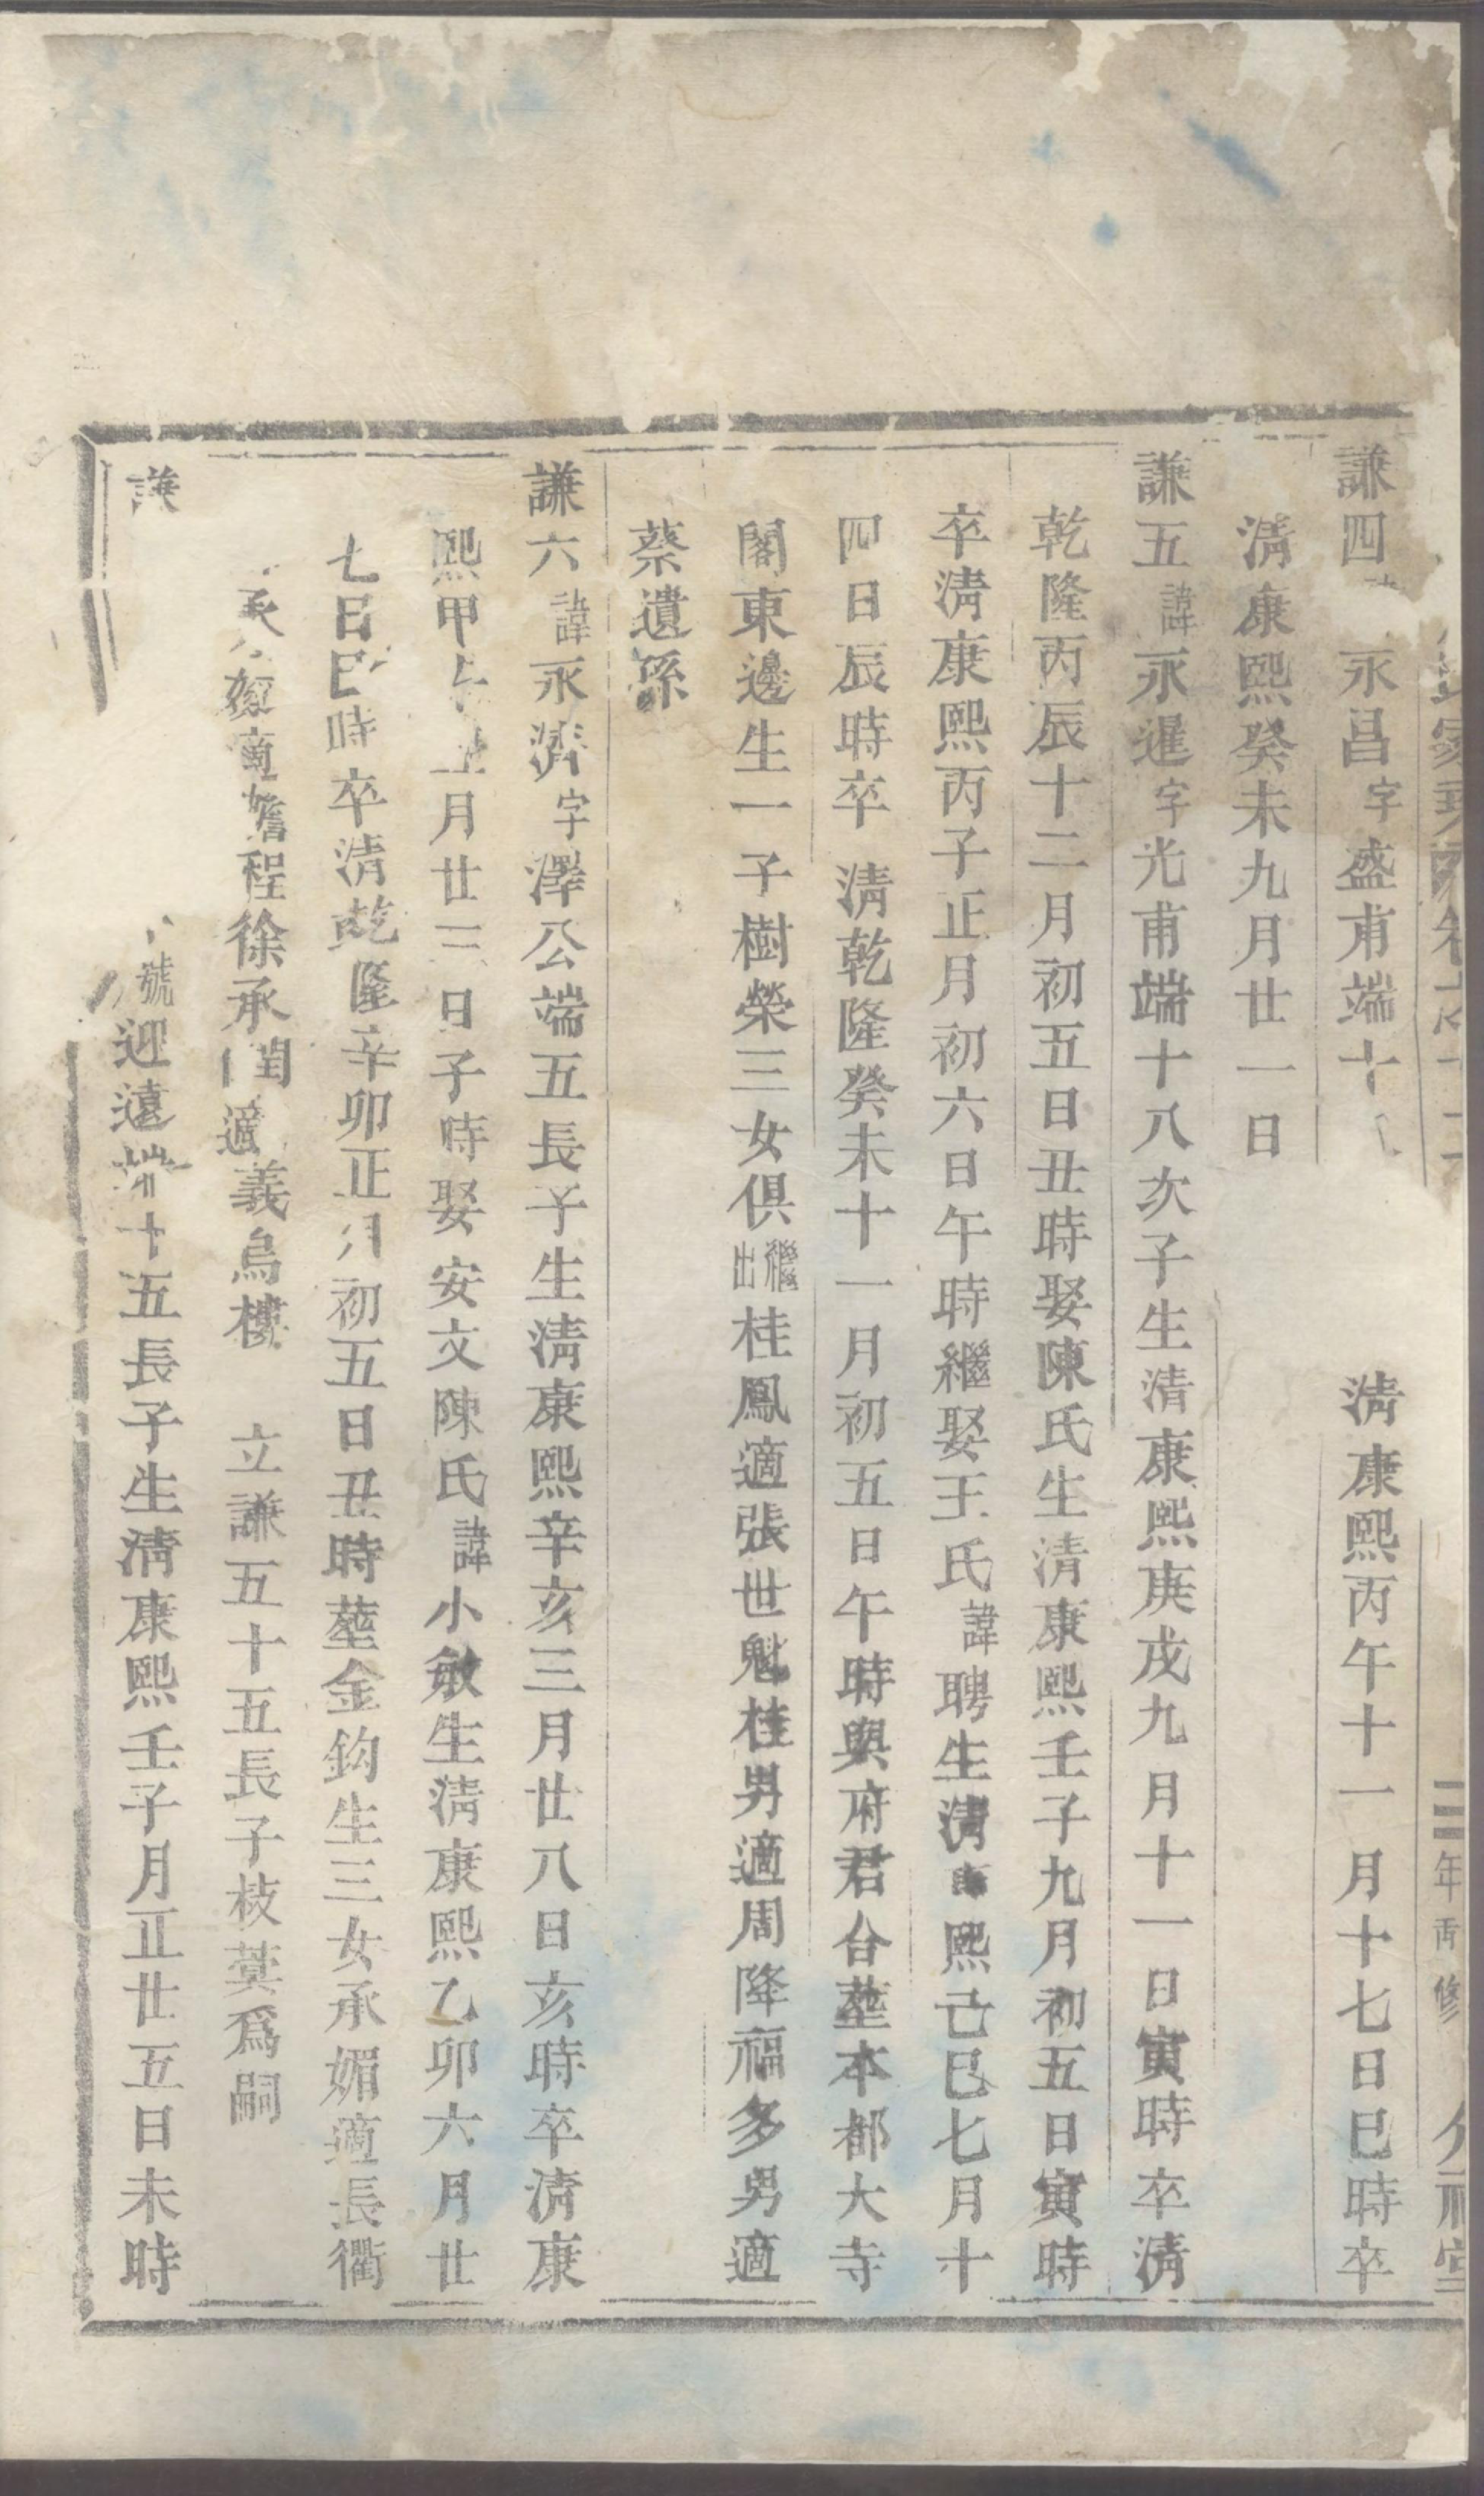 年 修
謙四 永昌字盛甫端十 清康熙丙午十一月十七日巳時卒
清康熙癸未九月廿一日
謙五諱永暹字光甫端十八次子生清康熙庚戌九月十一日寅時卒清
乾隆丙辰十二月初五日丑時娶陳氏生清康熙壬子九月初五日寅時
卒清康熙丙子正月初六日午時繼娶王氏諱聘生清康熙己巳七月十
四日辰時卒清乾隆癸未十一月初五日午時與府君合塟本都大寺
閣東邊生一子樹榮三女俱繼出桂鳳適張世魁桂男適周降福多男適
蔡遺孫
謙六諱永濟字澤公端五長子生清康熙辛亥三月廿八日亥時卒清康
熙甲 月廿三日子時娶安文陳氏諱小敏生清康熙乙卯六月廿
七日巳時卒清乾隆辛卯正月初五日丑時塟金鈎生三女承媚適長衢
程徐承閏適義烏樓 立謙五十五長子枝蓂爲嗣
號迎遠端十五長子生清康熙壬子月正廿五日未時